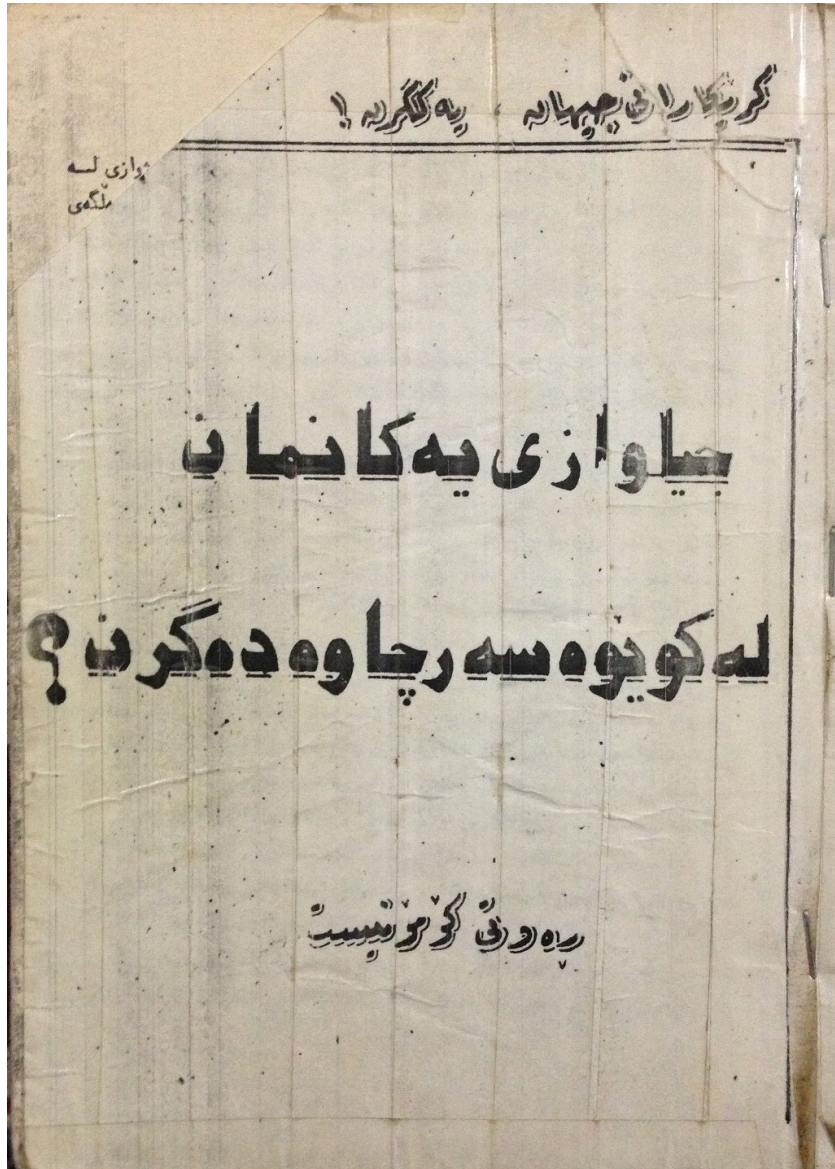 كرێكارانی جیهان، یەكگرن!
وازی لـــە
مڵگەی
جیاوازی یەكانمان
لە كوێوە سەرچاوە دەگرن؟
ڕەوتی كۆمۆنیست